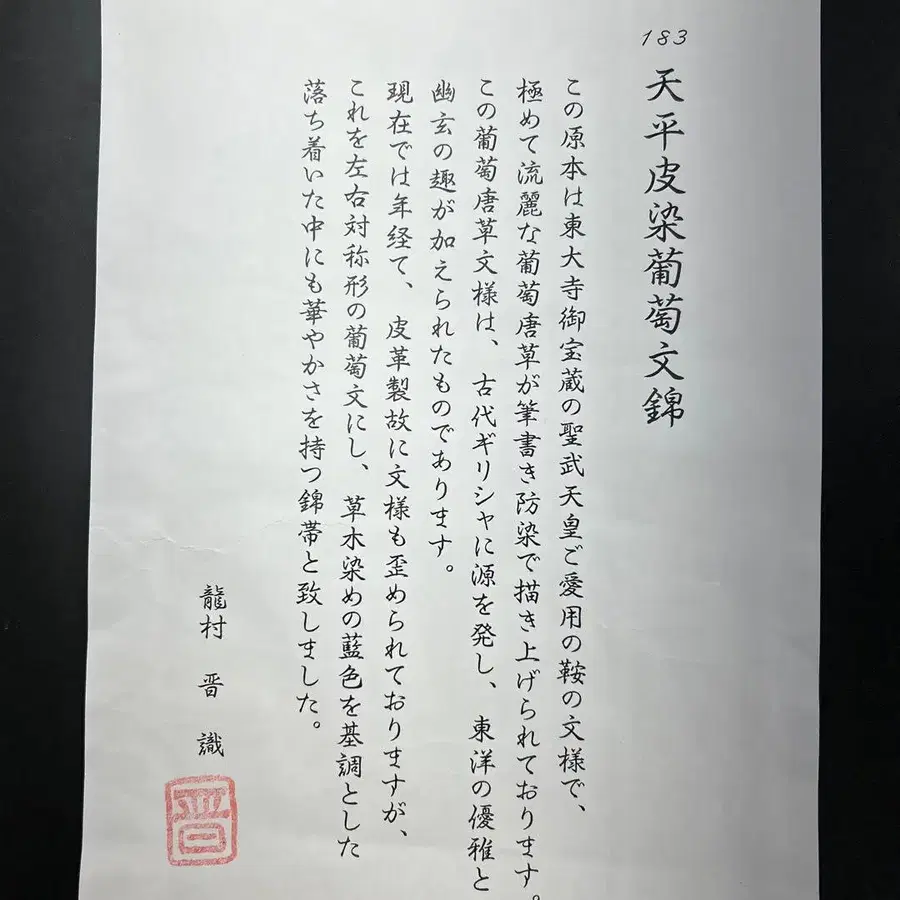 183
天平皮染葡萄文錦
この原本は東大寺御宝蔵の聖武天皇ご愛用の鞍の文様で、
極めて流麗な葡萄唐草が筆書き防染で描き上げられております。
この葡萄唐草文様は、古代ギリシャに源を発し、東洋の優雅と
幽玄の趣が加えられたものであります。
現在では年経て、皮革製故に文様も歪められておりますが、
これを左右対称形の葡萄文にし、草木染めの藍色を基調とした
落ち着いた中にも華やかさを持つ錦帯と致しました。
龍村 晋 識
晋